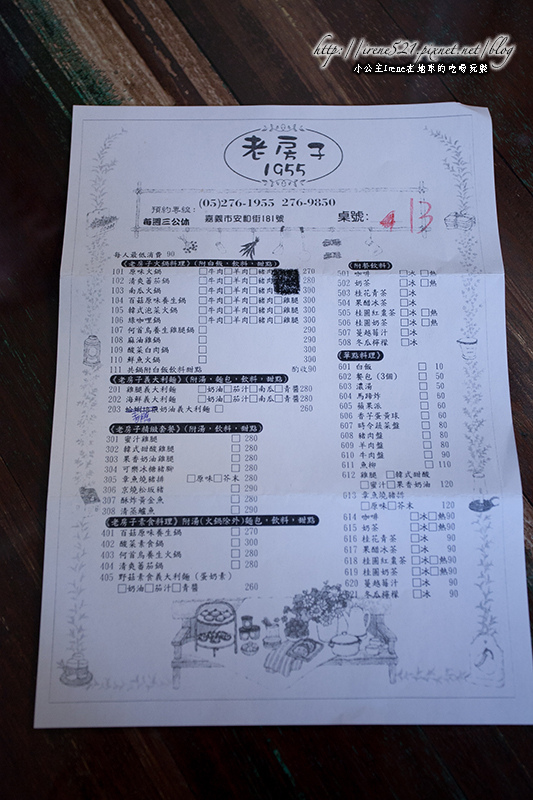 http://irene521.pixnet.net/blog
小公主Irene在地球的吃喝玩樂
老房子
1955
預約專線:
(05)276-1955 276-9850
每週三公休
嘉義市安和街181號
桌號:
13
每人最低消費 90
《老房子火鍋料理》(附白飯，飲料，甜點)
101 原味火鍋 □牛肉□羊肉□豬肉 270
102 清爽蕃茄鍋 □牛肉□羊肉□豬肉 280
103 南瓜火鍋 □牛肉□羊肉□豬肉 300
104 百菇原味養生鍋 □牛肉□羊肉□豬肉□雞腿 300
105 韓式泡菜火鍋 □牛肉□羊肉□豬肉□雞腿 300
106 綠咖哩鍋 □牛肉□羊肉□豬肉□雞腿 300
107 何首烏養生雞腿鍋 □ 290
108 麻油雞鍋 □ 290
109 酸菜白肉鍋 □ 300
110 鮮魚火鍋 □ 300
111 共鍋附白飯飲料甜點 酌收90
《老房子義大利麵》(附湯，麵包，飲料，甜點)
201 雞腿義大利麵 □奶油□茄汁□南瓜□青醬280
202 海鮮義大利麵 □奶油□茄汁□南瓜□青醬280
203 奶油義大利麵 □ 260
《老房子精緻套餐》(附湯，飲料，甜點)
301 蜜汁雞腿 □ 280
302 韓式甜酸雞腿 □ 280
303 果香奶油雞腿 □ 280
304 可樂冰糖豬腳 □ 280
305 章魚燒豬排 □原味□芥末 □ 280
396 京燒松阪豬 □ 290
397 酥炸黃金魚 □ 280
398 清蒸鱸魚 □ 280
《老房子素食料理》附湯(火鍋除外)麵包，飲料，甜點
401 百菇原味養生鍋 □ 270
402 酸菜素食鍋 □ 300
403 何首烏養生火鍋 □ 280
404 清爽蕃茄鍋 □ 280
405 野菇素食義大利麵(蛋奶素)
□奶油□茄汁□青醬 260
《附餐飲料》
501 咖啡 □冰□熱
502 奶茶 □冰□熱
503 桂花青茶 □冰
504 果醋冰茶 □冰
505 桂圓紅棗茶 □冰□熱
506 桂圓奶茶 □冰□熱
507 蔓越莓汁 □冰
508 冬瓜檸檬 □冰
《單點料理》
601 白飯 □ 10
602 餐包(3個) □ 50
603 濃湯 □ 50
604 馬蹄炸 □ 60
605 蘋果派 □ 60
606 香芋蛋黃球 □ 60
607 時令蔬菜盤 □ 80
608 豬肉盤 □ 80
609 羊肉盤 □ 80
610 牛肉盤 □ 90
611 魚柳 □ 110
612 雞腿 □韓式甜酸
□蜜汁□果香奶油 120
613 章魚燒豬排
□原味□芥末 120
614 咖啡 □冰□熱90
615 奶茶 □冰□熱90
616 桂花青茶 □冰 90
617 果醋冰茶 □冰 90
618 桂圓紅棗茶 □冰□熱90
619 桂圓奶茶 □冰□熱90
620 蔓越莓汁 □冰 90
621 冬瓜檸檬 □冰 90